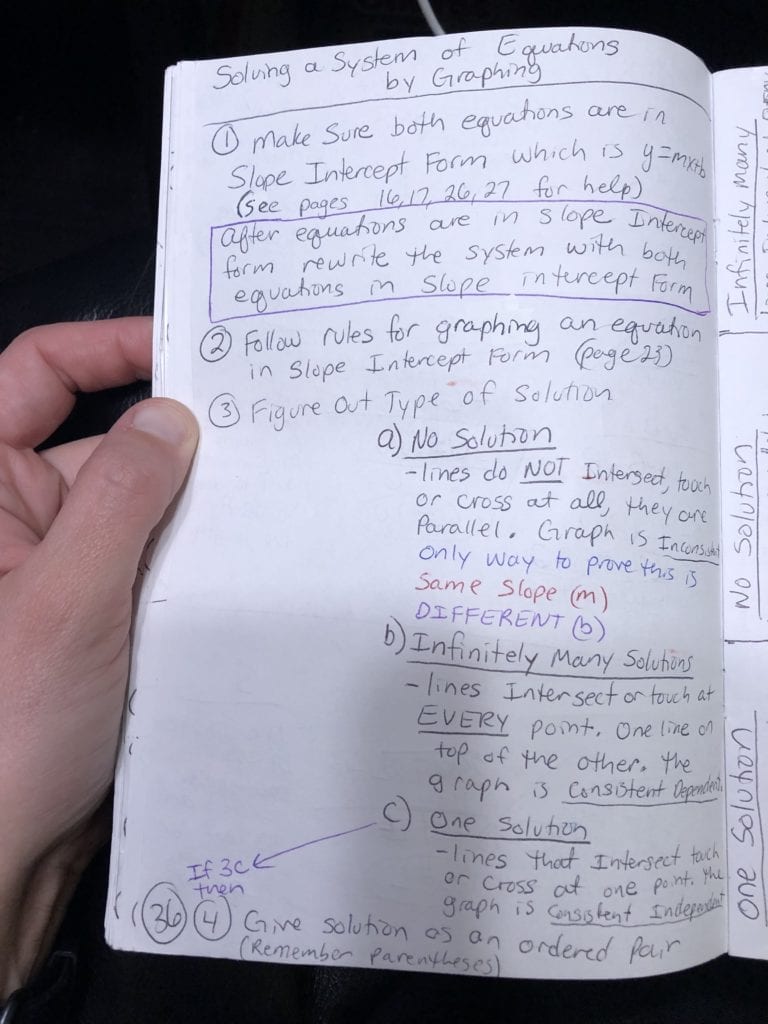 Solving a System of Equations
by Graphing
① Make Sure both equations are in
Slope Intercept Form which is y=mx+b
(See pages 16,17, 26, 27 for help)
after equations are in slope Intercept
form rewrite the system with both
equations in Slope intercept Form
② Follow rules for graphing an equation
in Slope Intercept Form (page 23)
③ Figure Out Type of Solution
a) No Solution
-lines do NOT Intersect, touch
or cross at all, they are
Parallel. Graph is Inconsistent
only way to prove this is
Same Slope (m)
DIFFERENT (b)
b) Infinitely Many Solutions
-lines Intersect or touch at
EVERY point. One line on
top of the other. the
graph is Consistent Dependent.
c) One Solution
-lines that Intersect touch
or cross at one point. the
graph is Consistent Independent
If 3c
then
36 ④ Give solution as an ordered pair
(Remember parentheses)
Infinitely Many
No Solution
One Solution